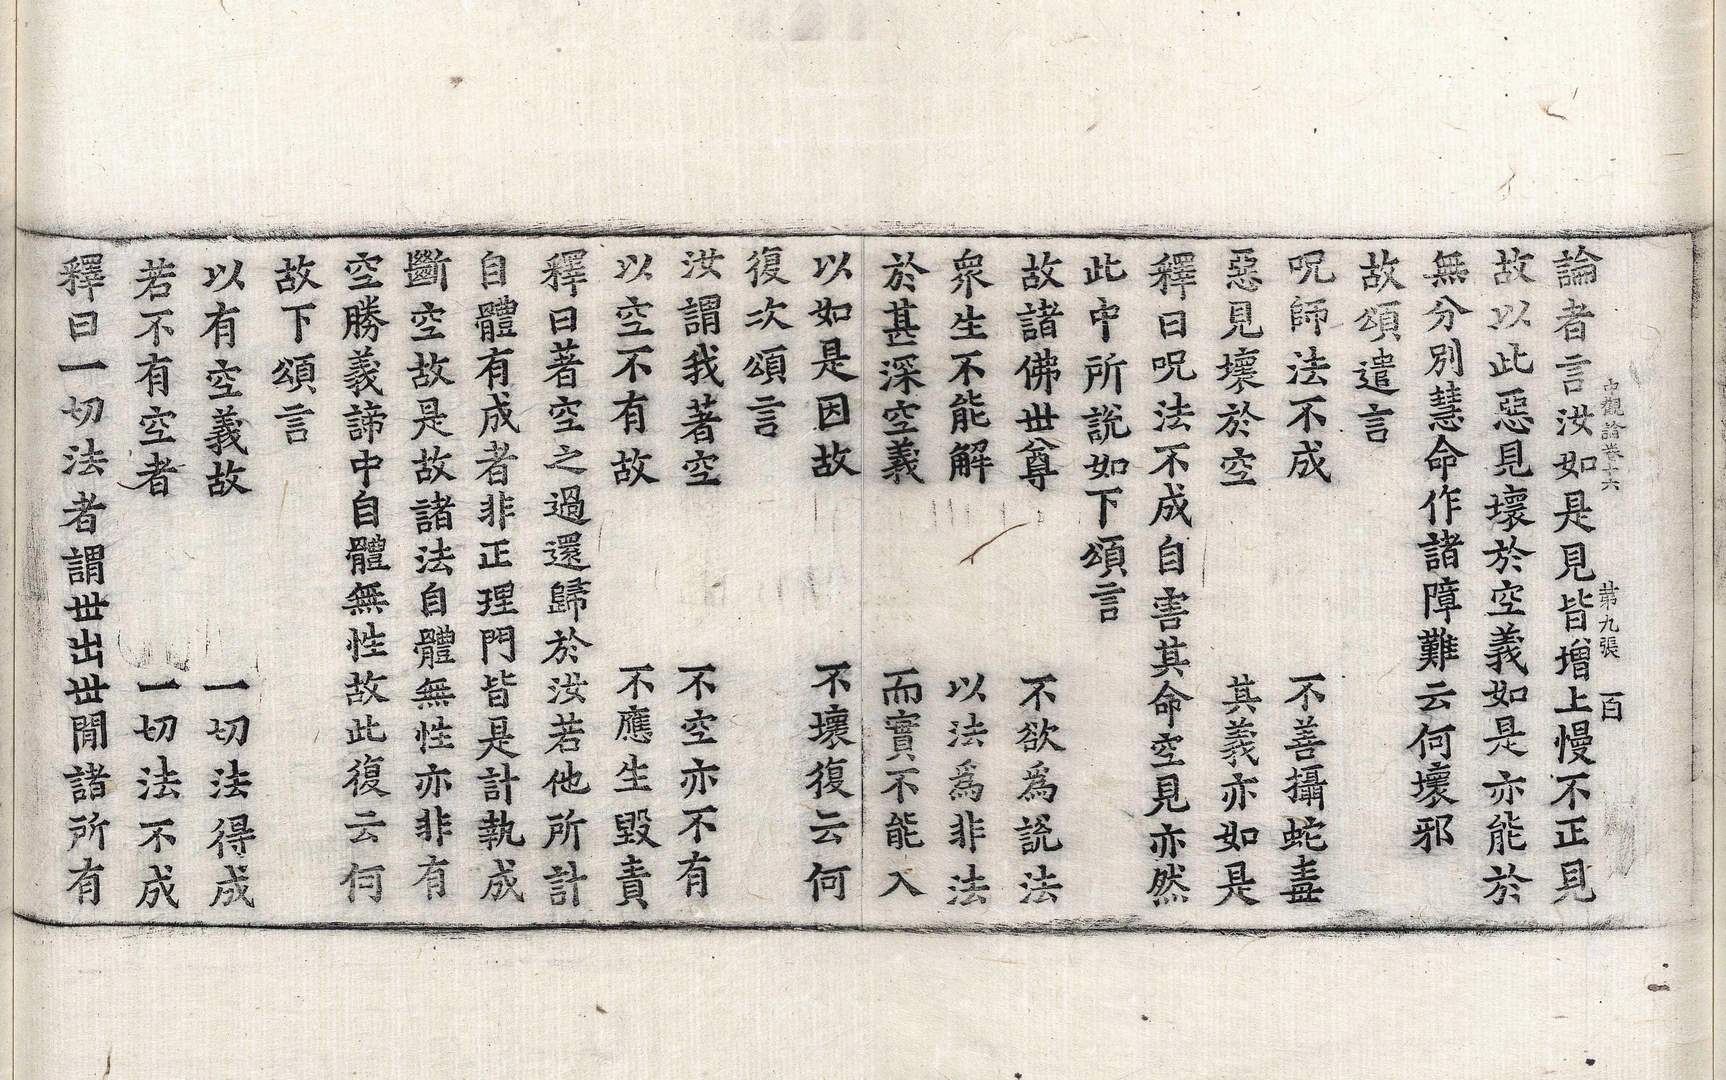 中觀論卷十六　第九張　百
論者言汝如是見皆增上慢不正見
故以此惡見壞於空義如是亦能於
無分別慧命作諸障難云何壞邪
故頌遣言
呪師法不成　不善攝蛇毒
惡見壞於空　其義亦如是
釋曰呪法不成自害其命空見亦然
此中所說如下頌言
故諸佛世尊　不欲為說法
衆生不能解　以法為非法
於甚深空義　而實不能入
以如是因故　不壞復云何
復次頌言
汝謂我著空　不空亦不有
以空不有故　不應生毀責
釋曰著空之過還歸於汝若他所計
自體有成者非正理門皆是計執成
斷空故是故諸法自體無性亦非有
空勝義諦中自體無性故此復云何
故下頌言
以有空義故　一切法得成
若不有空者　一切法不成
釋曰一切法者謂世出世間諸所有